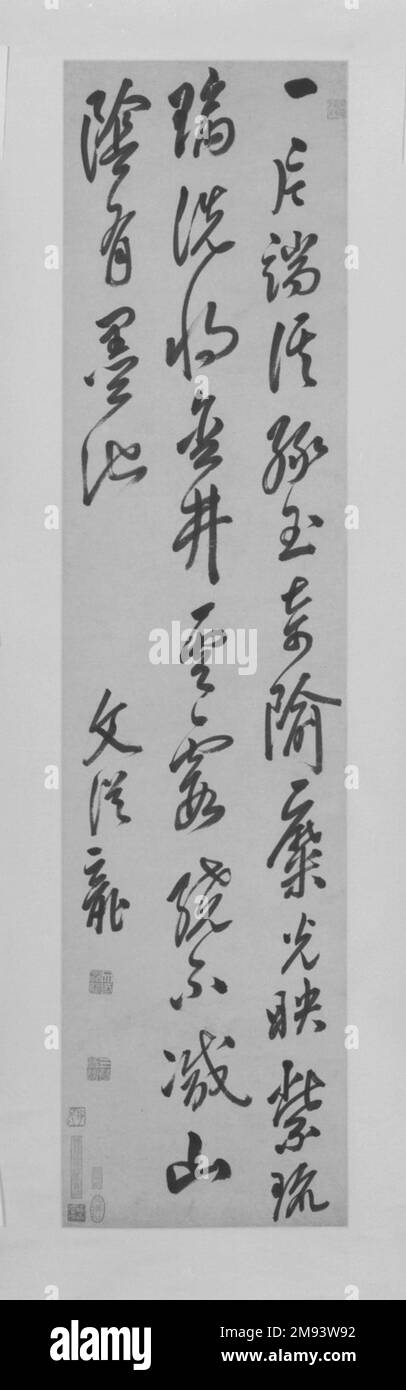 一片端溪綠玉奇隃麋光映紫琉
璃洗將金井雲霞繞不減山
陰有墨池
文從龍
alamy
alamy
Image ID: 2M93W92
www.alamy.com